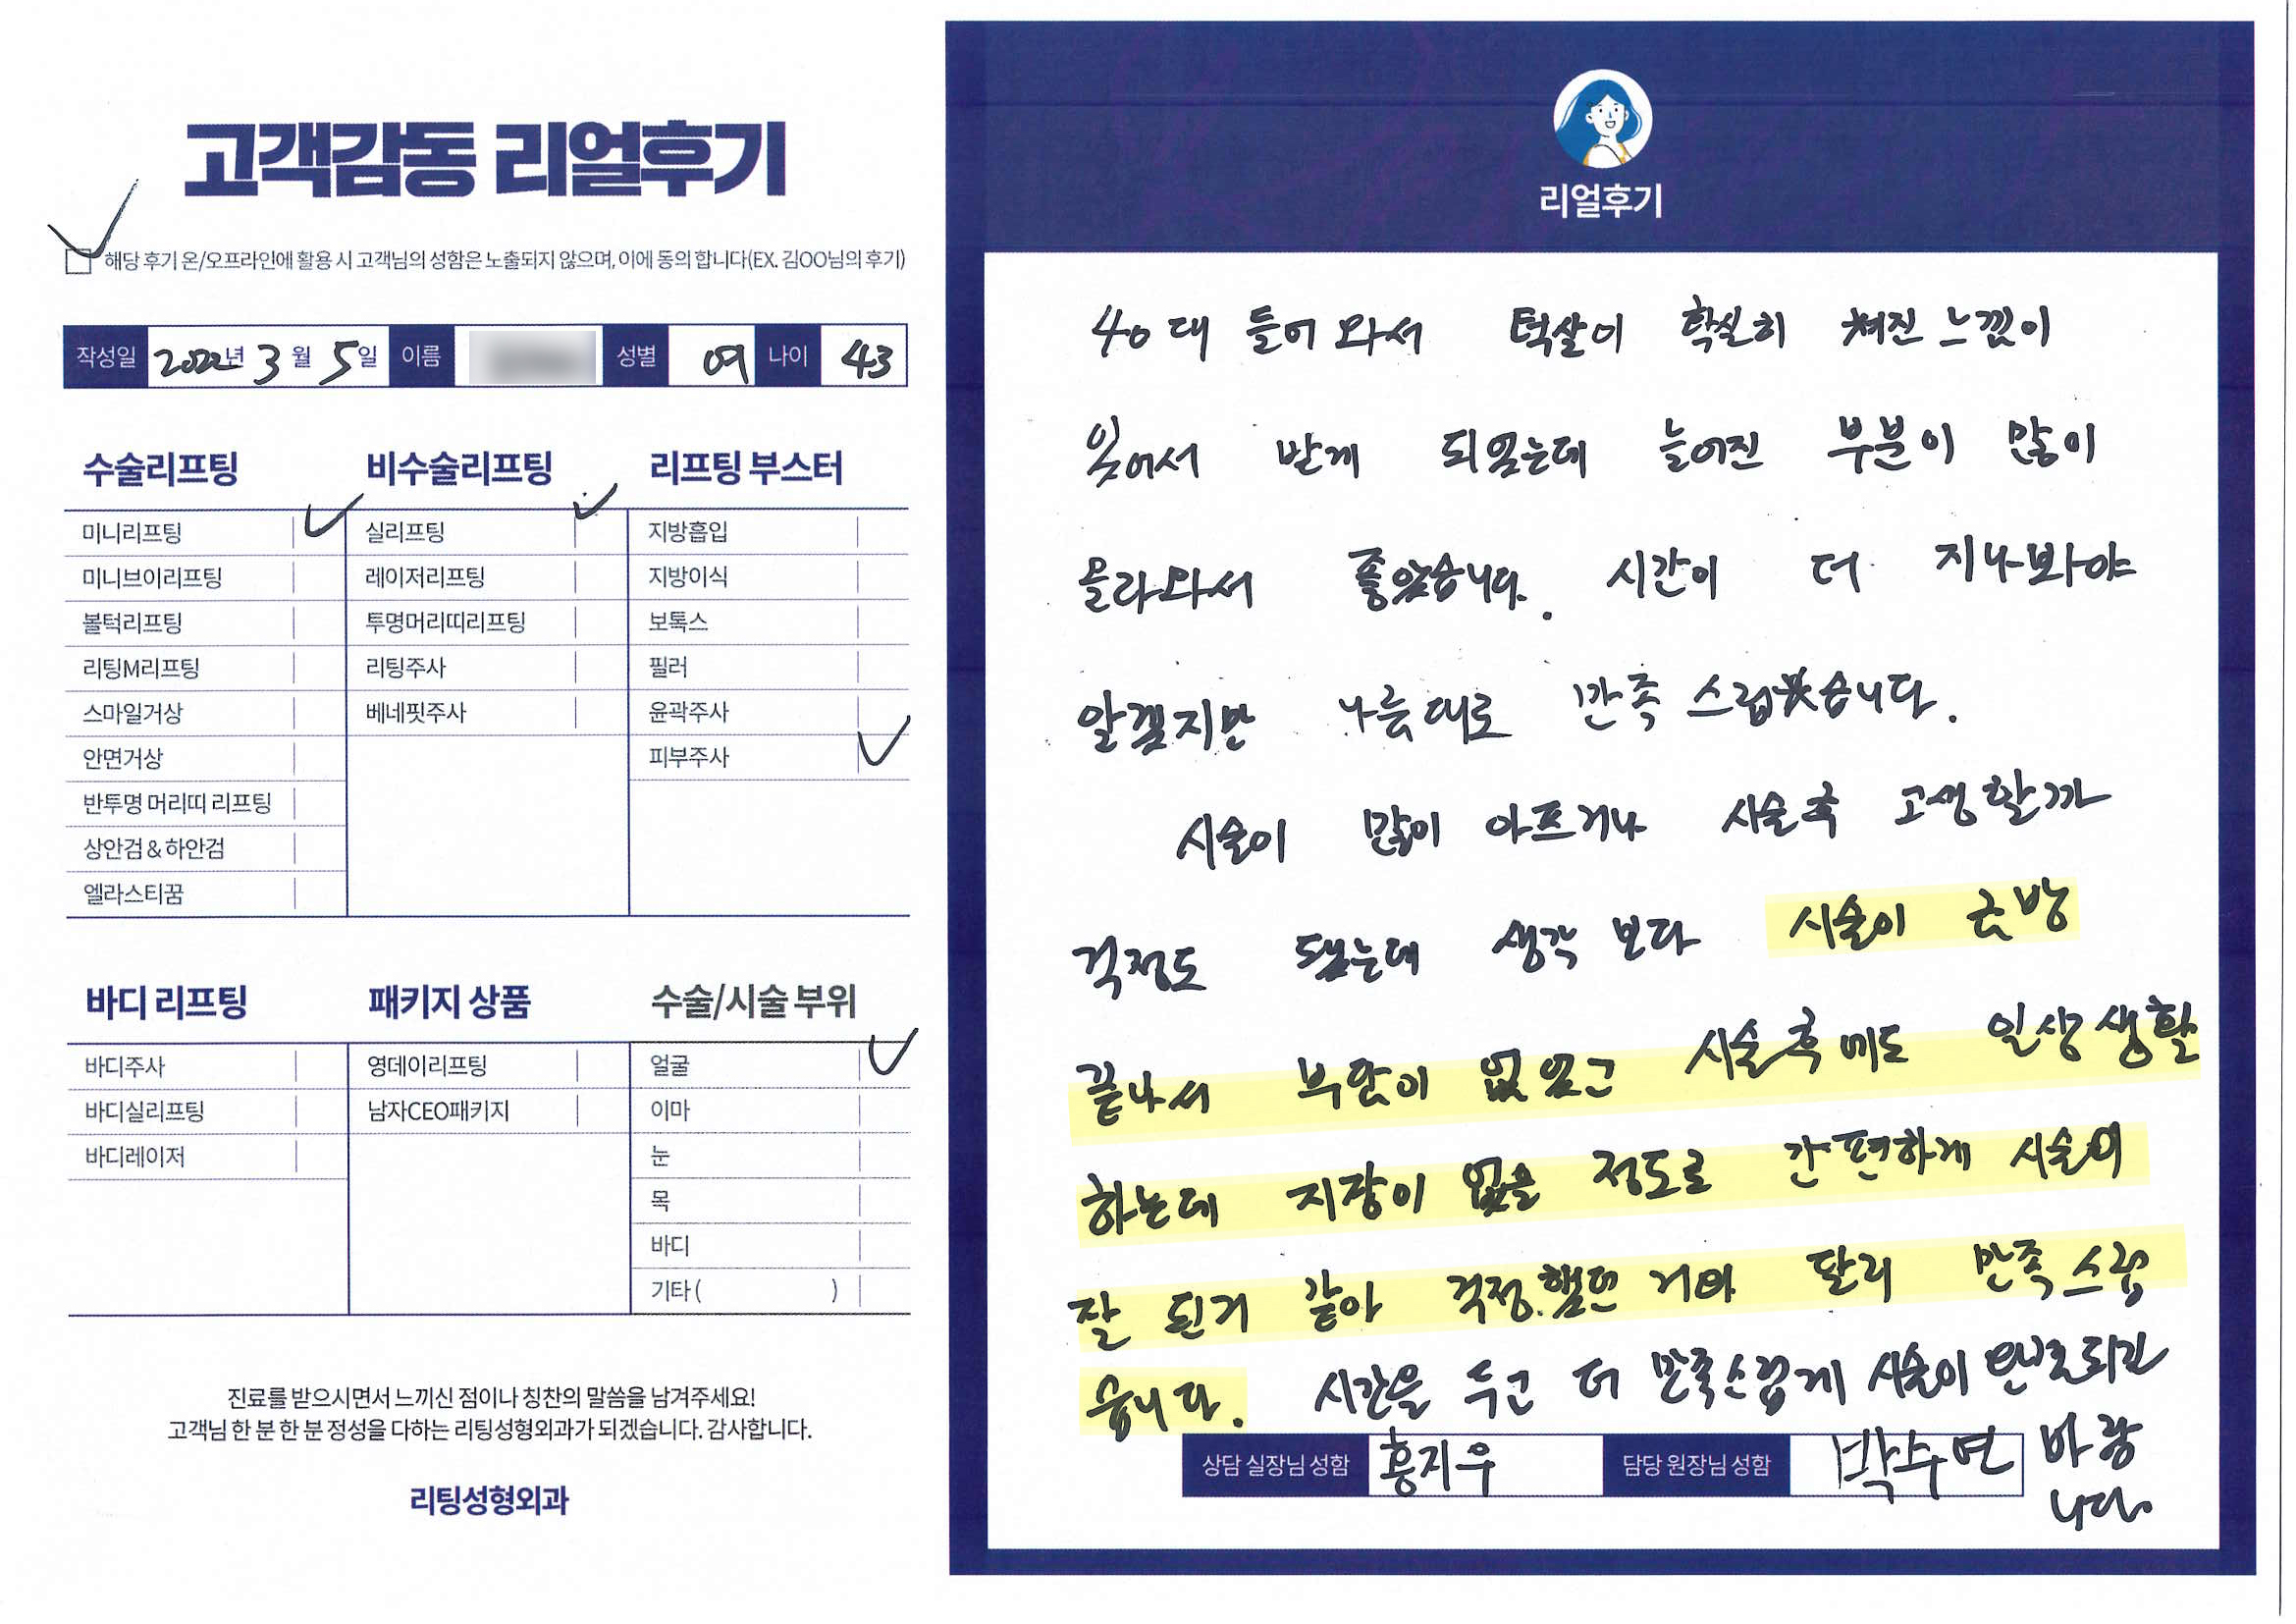 고객감동 리얼후기
해당 후기 온/오프라인에 활용 시 고객님의 성함은 노출되지 않으며, 이에 동의 합니다(EX. 김OO님의 후기)
작성일 2022년 3월 5일 이름 성별 여 나이 43
수술리프팅 비수술리프팅 리프팅 부스터
미니리프팅 실리프팅 지방흡입
미니브이리프팅 레이저리프팅 지방이식
볼턱리프팅 투명머리띠리프팅 보톡스
리팅M리프팅 리팅주사 필러
스마일거상 베네핏주사 윤곽주사
안면거상 피부주사
반투명 머리띠 리프팅
상안검 & 하안검
엘라스티꿈
바디 리프팅 패키지 상품 수술/시술 부위
바디주사 영데이리프팅 얼굴
바디실리프팅 남자CEO패키지 이마
바디레이저 눈
목
바디
기타 ( )
진료를 받으시면서 느끼신 점이나 칭찬의 말씀을 남겨주세요!
고객님 한 분 한 분 정성을 다하는 리팅성형외과가 되겠습니다. 감사합니다.
리팅성형외과
리얼후기
40대 들어 와서 턱살이 확실히 쳐진 느낌이
있어서 받게 되었는데 늘어진 부분이 많이
올라와서 좋았습니다. 시간이 더 지나봐야
알겠지만 나름대로 만족 스럽습니다.
시술이 많이 아프거나 시술후 고생할까
걱정도 됐는데 생각 보다 시술이 금방
끝나서 부담이 없었고 시술후에도 일상생활
하는데 지장이 없을 정도로 간편하게 시술이
잘 된거 같아 걱정했던 거와 달리 만족스럽
습니다. 시간을 두고 더 만족스럽게 시술이 완료되길
바랍
니다.
상담 실장님 성함 홍지우 담당 원장님 성함 박수연